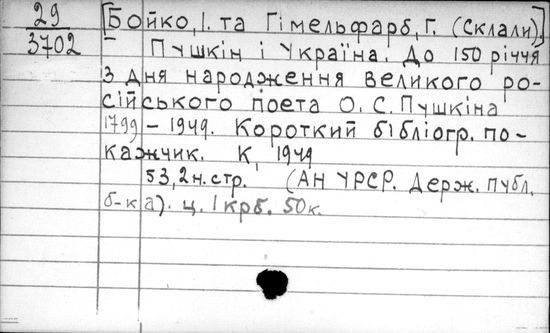 29
3702
[Бойко, І. та Гімельфарб, Г. (Склали)].
Пушкін і Україна. До 150 річчя
з дня народження великого ро-
сійського поета О. С. Пушкіна
1799 – 1949. Короткий бібліогр. по-
кажчик. К, 1949
53, 2 н. стр. (АН УРСР. Держ. публ.
б-ка). ц. 1 крб. 50 к.